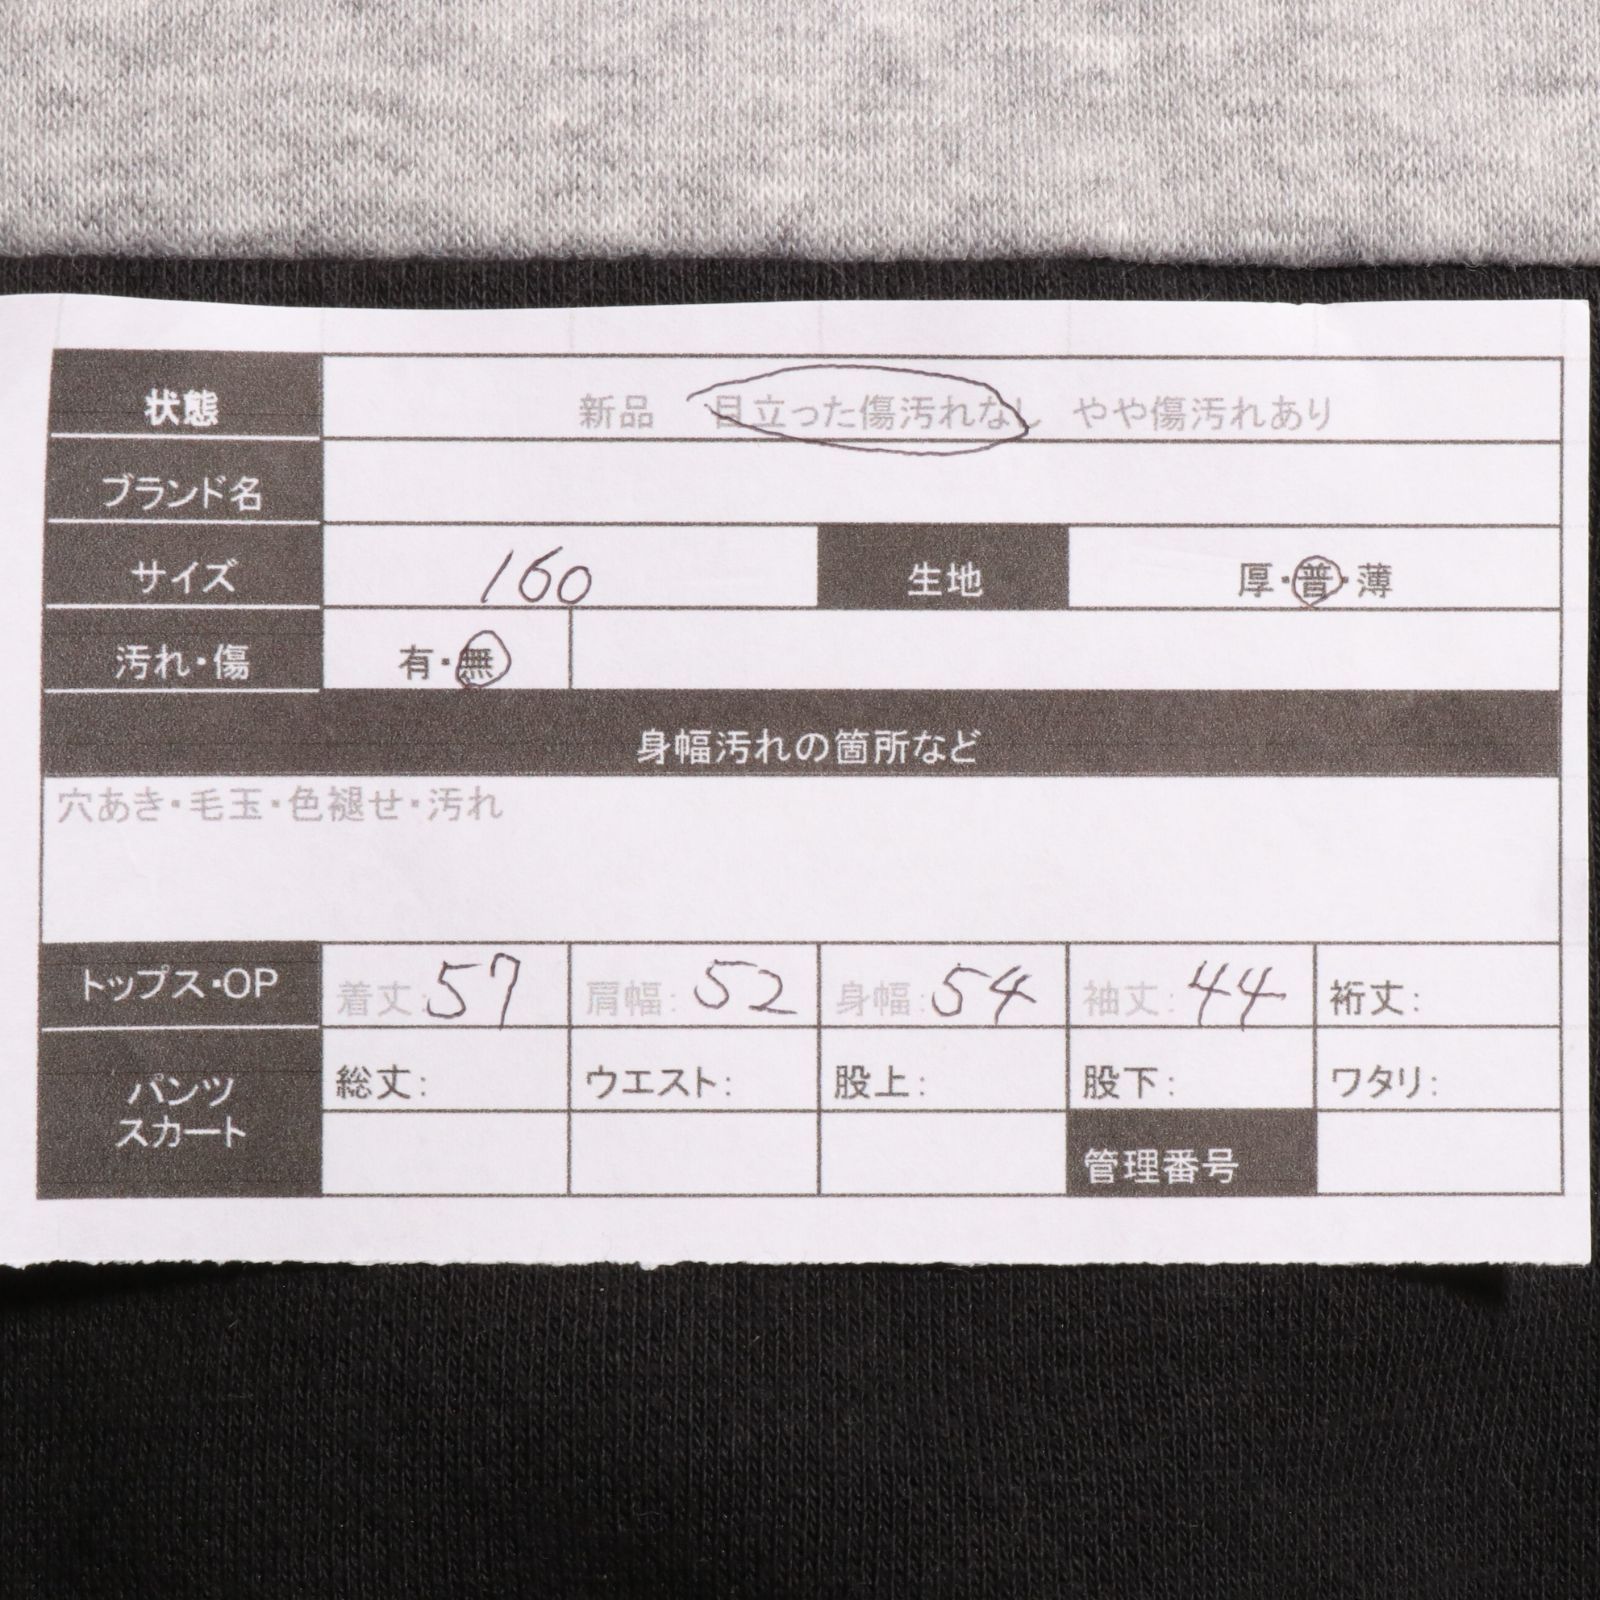 状態 新品 目立った傷汚れなし やや傷汚れあり
ブランド名
サイズ 160 生地 厚・普・薄
汚れ・傷 有・無
身幅汚れの箇所など
穴あき・毛玉・色褪せ・汚れ
トップス・OP 着丈:57 肩幅:52 身幅:54 袖丈:44 裄丈:
パンツ
スカート
総丈: ウエスト: 股上: 股下: ワタリ:
管理番号